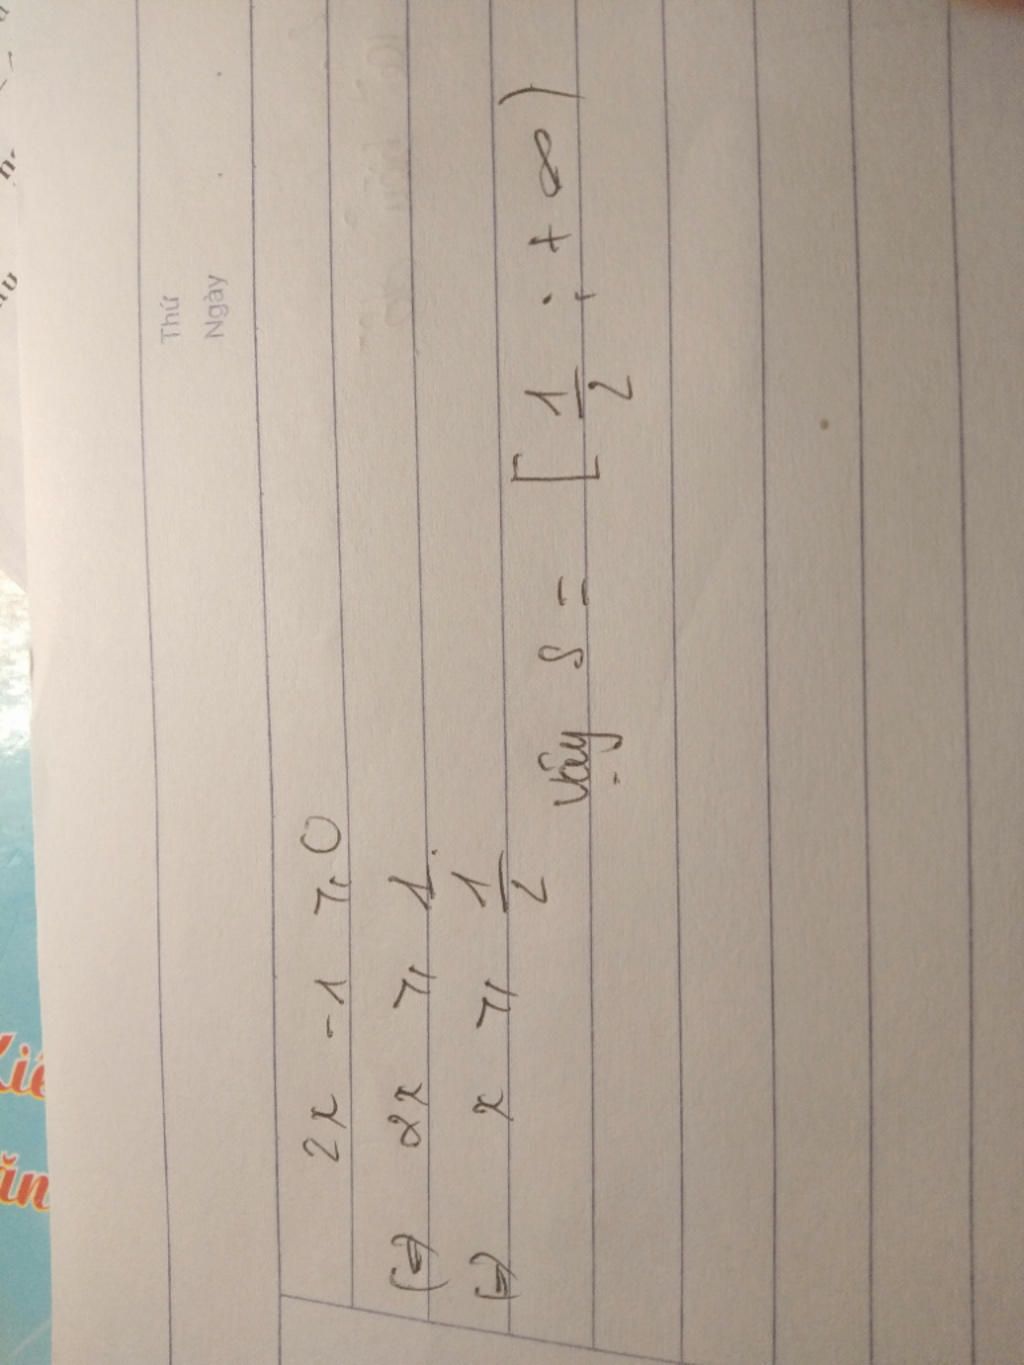 Thứ
Ngày
2x - 1 ⩾ 0
(=) 2x ⩾ 1
(=) x ⩾ 1/2
Vậy S = [ 1/2 ; + ∞ )